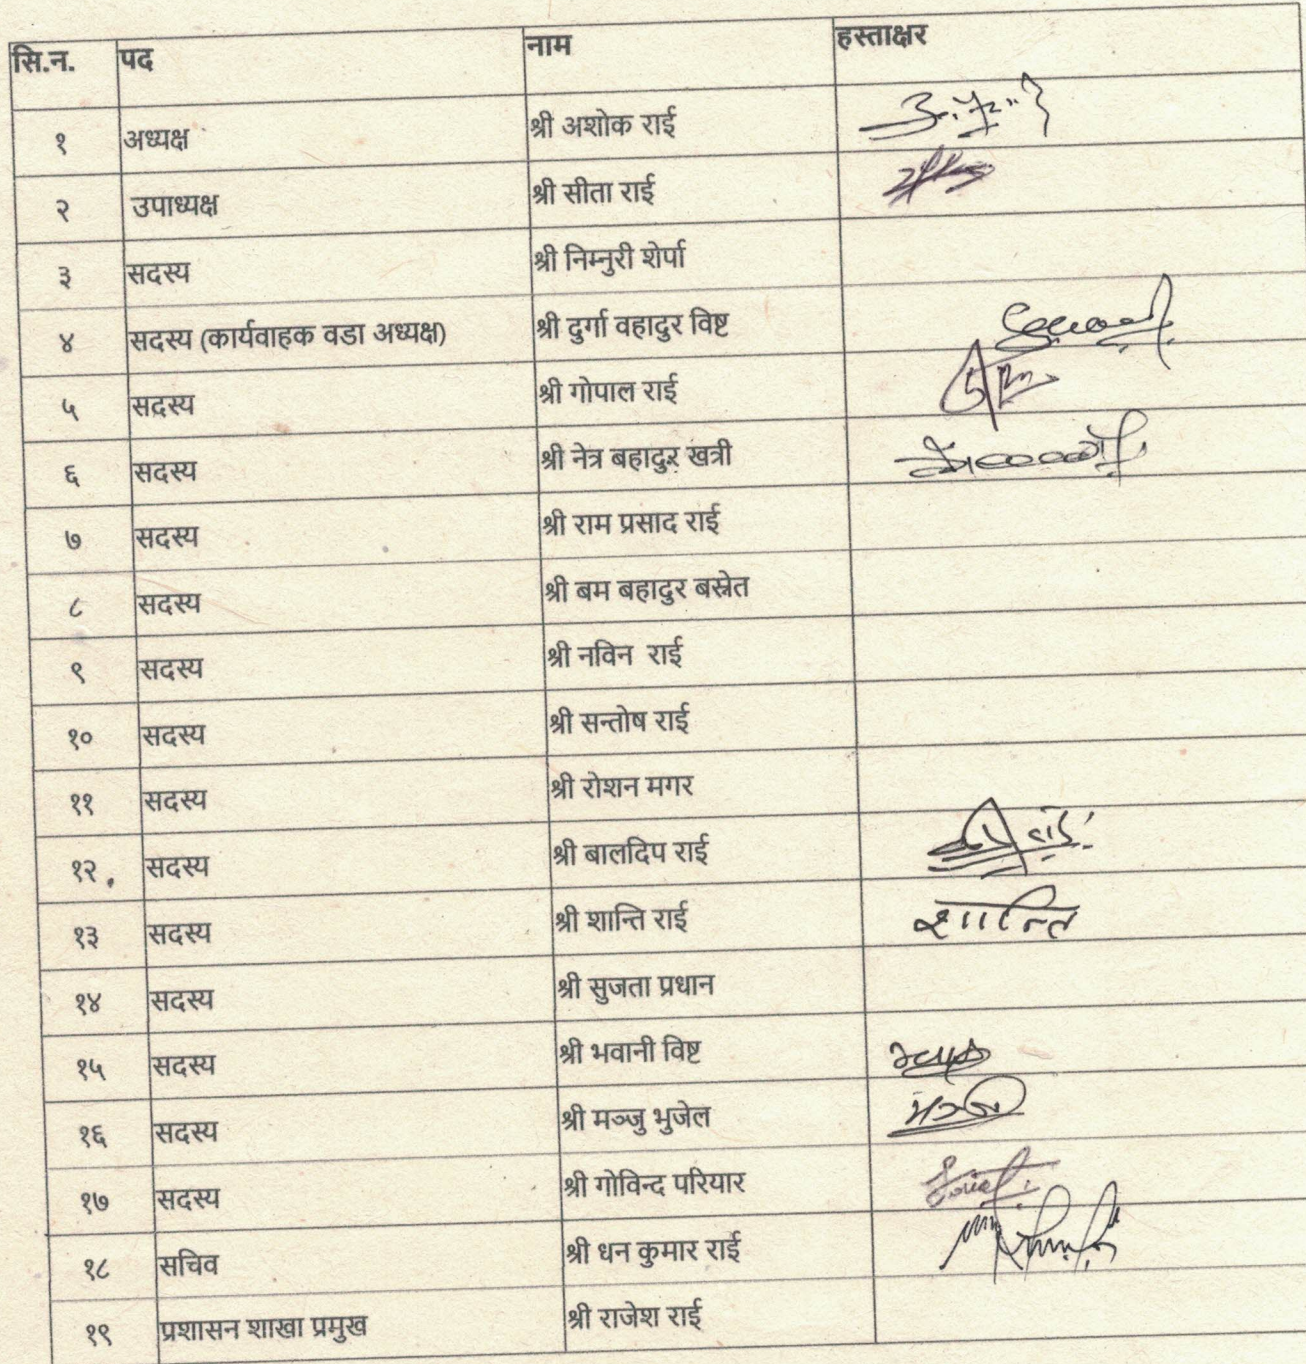 सि.न. पद नाम हस्ताक्षर
१ अध्यक्ष श्री अशोक राई
२ उपाध्यक्ष श्री सीता राई
३ सदस्य श्री निम्नुरी शेर्पा
४ सदस्य (कार्यवाहक वडा अध्यक्ष) श्री दुर्गा वहादुर विष्ट
५ सदस्य श्री गोपाल राई
६ सदस्य श्री नेत्र बहादुर खत्री
७ सदस्य श्री राम प्रसाद राई
८ सदस्य श्री बम बहादुर बस्नेत
९ सदस्य श्री नविन राई
१० सदस्य श्री सन्तोष राई
११ सदस्य श्री रोशन मगर
१२ सदस्य श्री बालदिप राई
१३ सदस्य श्री शान्ति राई शान्ति
१४ सदस्य श्री सुजता प्रधान
१५ सदस्य श्री भवानी विष्ट
१६ सदस्य श्री मञ्जु भुजेल
१७ सदस्य श्री गोविन्द परियार
१८ सचिव श्री धन कुमार राई
१९ प्रशासन शाखा प्रमुख श्री राजेश राई